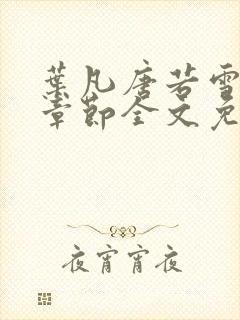 葉凡唐若雪
章節全文免
夜宵宵夜